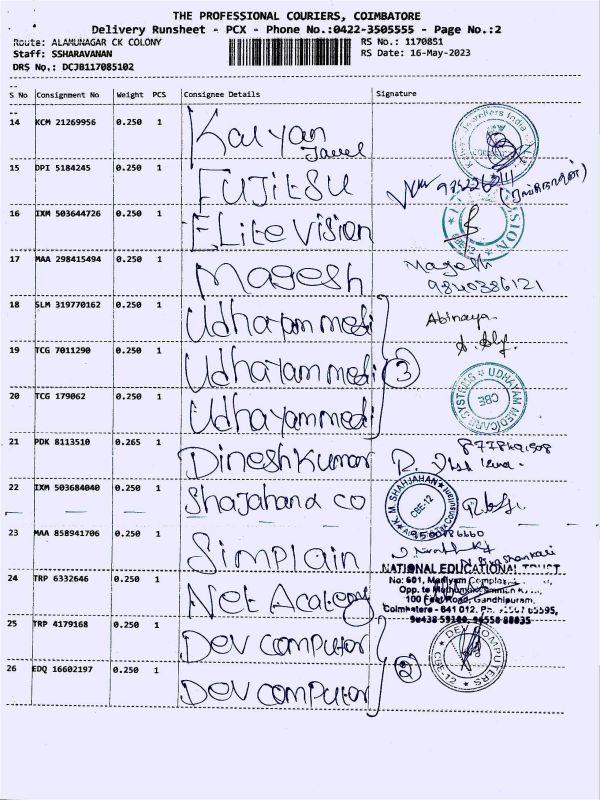 THE PROFESSIONAL COURIERS, COIMBATORE
Delivery Runsheet - PCX - Phone No.:0422-3505555 - Page No.:2
Route: ALAMUNAGAR CK COLONY
RS No.: 1170851
Staff: SSHARAVANAN
RS Date: 16-May-2023
DRS No.: DCJB117085102
S No Consignment No Weight PCS Consignee Details Signature
14 KCM 21269956 0.250 1 Kalyan
Jewel
15 DPI 5184245 0.250 1 FUJITSU
16 IXM 503644726 0.250 1 ELite Vision
17 MAA 298415494 0.250 1 Magesh Magesh
9840386121
18 SLM 319770162 0.250 1 Udhayam medi Abinaya
19 TCG 7011290 0.250 1 Udhayam medi 3
20 TCG 179062 0.250 1 Udhayam medi UDHAYAM MEDICARE SYSTEMS CBE
21 PDK 8113510 0.265 1 Dinesh Kumar
22 IXM 503684040 0.250 1 Shajahan & CO K.M. SHAHJAHAN CBE-12
23 MAA 858941706 0.250 1 Simplain
NATIONAL EDUCATIONAL TRUST
24 TRP 6332646 0.250 1 Net Academy No: 601, Mariyam Complex
Opp. to
100 Feet Road, Gandhipuram,
Coimbatore - 641 012.
25 TRP 4179168 0.250 1 Dev computer DEV COMPUTERS CBE-12
26 EDQ 16602197 0.250 1 Dev computer 2